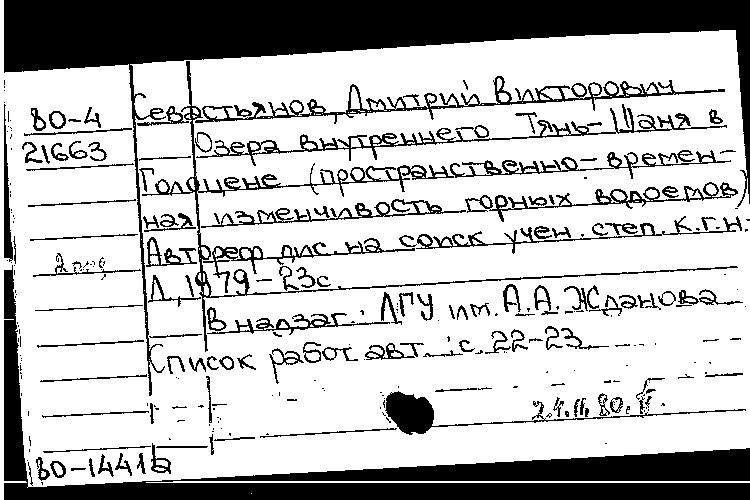 80-4
21663
Севастьянов, Дмитрий Викторович
Озера внутреннего Тянь-Шаня в
Голоцене (пространственно-времен-
ная изменчивость горных водоемов)
Автореф дис. на соиск учен. степ. к.г.н.
Л., 1979.-23с.
В надзаг.: ЛГУ им. А.А. Жданова
Список работ авт.: с. 22-23.
80-1441а